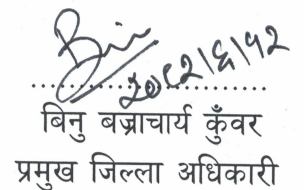 २०८२।६।१२
बिनु बज्राचार्य कुँवर
प्रमुख जिल्ला अधिकारी